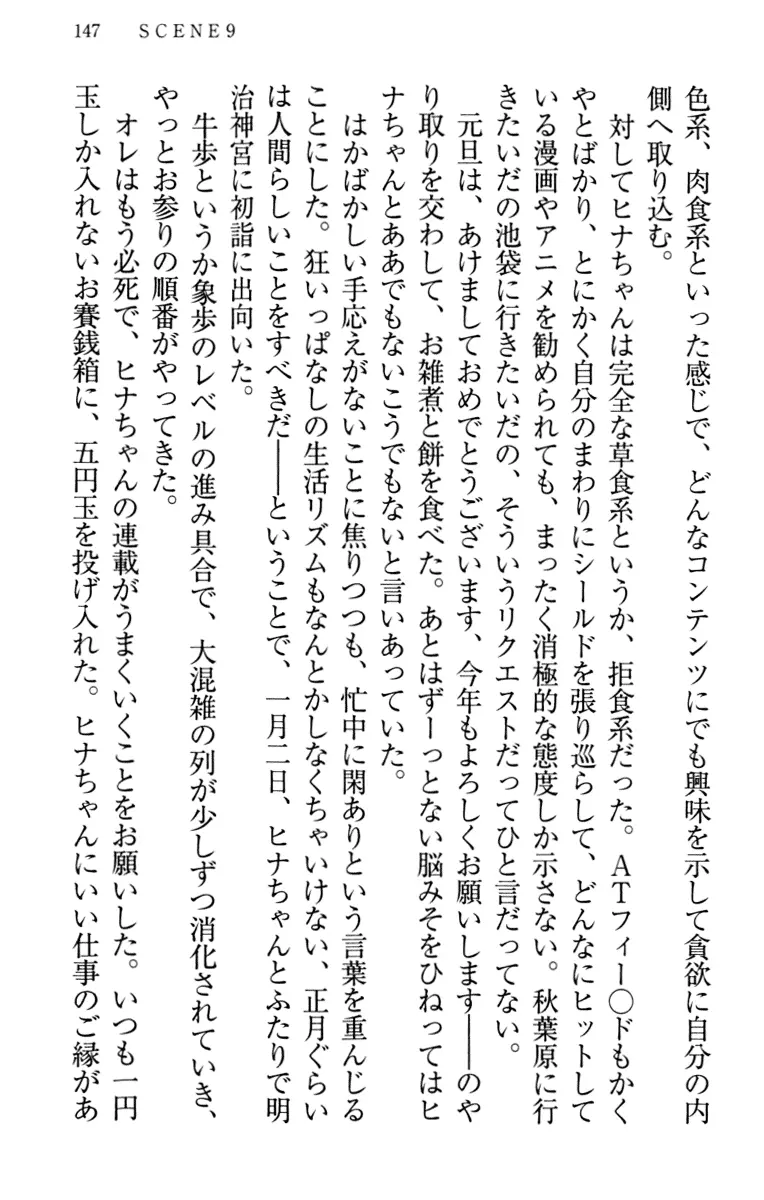 147 SCENE9
色系、肉食系といった感じで、どんなコンテンツにでも興味を示して貪欲に自分の内
側へ取り込む。
対してヒナちゃんは完全な草食系というか、拒食系だった。ATフィー〇ドもかく
やとばかり、とにかく自分のまわりにシールドを張り巡らして、どんなにヒットして
いる漫画やアニメを勧められても、まったく消極的な態度しか示さない。秋葉原に行
きたいだの池袋に行きたいだの、そういうリクエストだってひと言だってない。
元旦は、あけましておめでとうございます、今年もよろしくお願いします――のや
り取りを交わして、お雑煮と餅を食べた。あとはずーっとない脳みそをひねってはヒ
ナちゃんとああでもないこうでもないと言いあっていた。
はかばかしい手応えがないことに焦りつつも、忙中に閑ありという言葉を重んじる
ことにした。狂いっぱなしの生活リズムもなんとかしなくちゃいけない、正月ぐらい
は人間らしいことをすべきだ――ということで、一月二日、ヒナちゃんとふたりで明
治神宮に初詣に出向いた。
牛歩というか象歩のレベルの進み具合で、大混雑の列が少しずつ消化されていき、
やっとお参りの順番がやってきた。
オレはもう必死で、ヒナちゃんの連載がうまくいくことをお願いした。いつも一円
玉しか入れないお賽銭箱に、五円玉を投げ入れた。ヒナちゃんにいい仕事のご縁があ